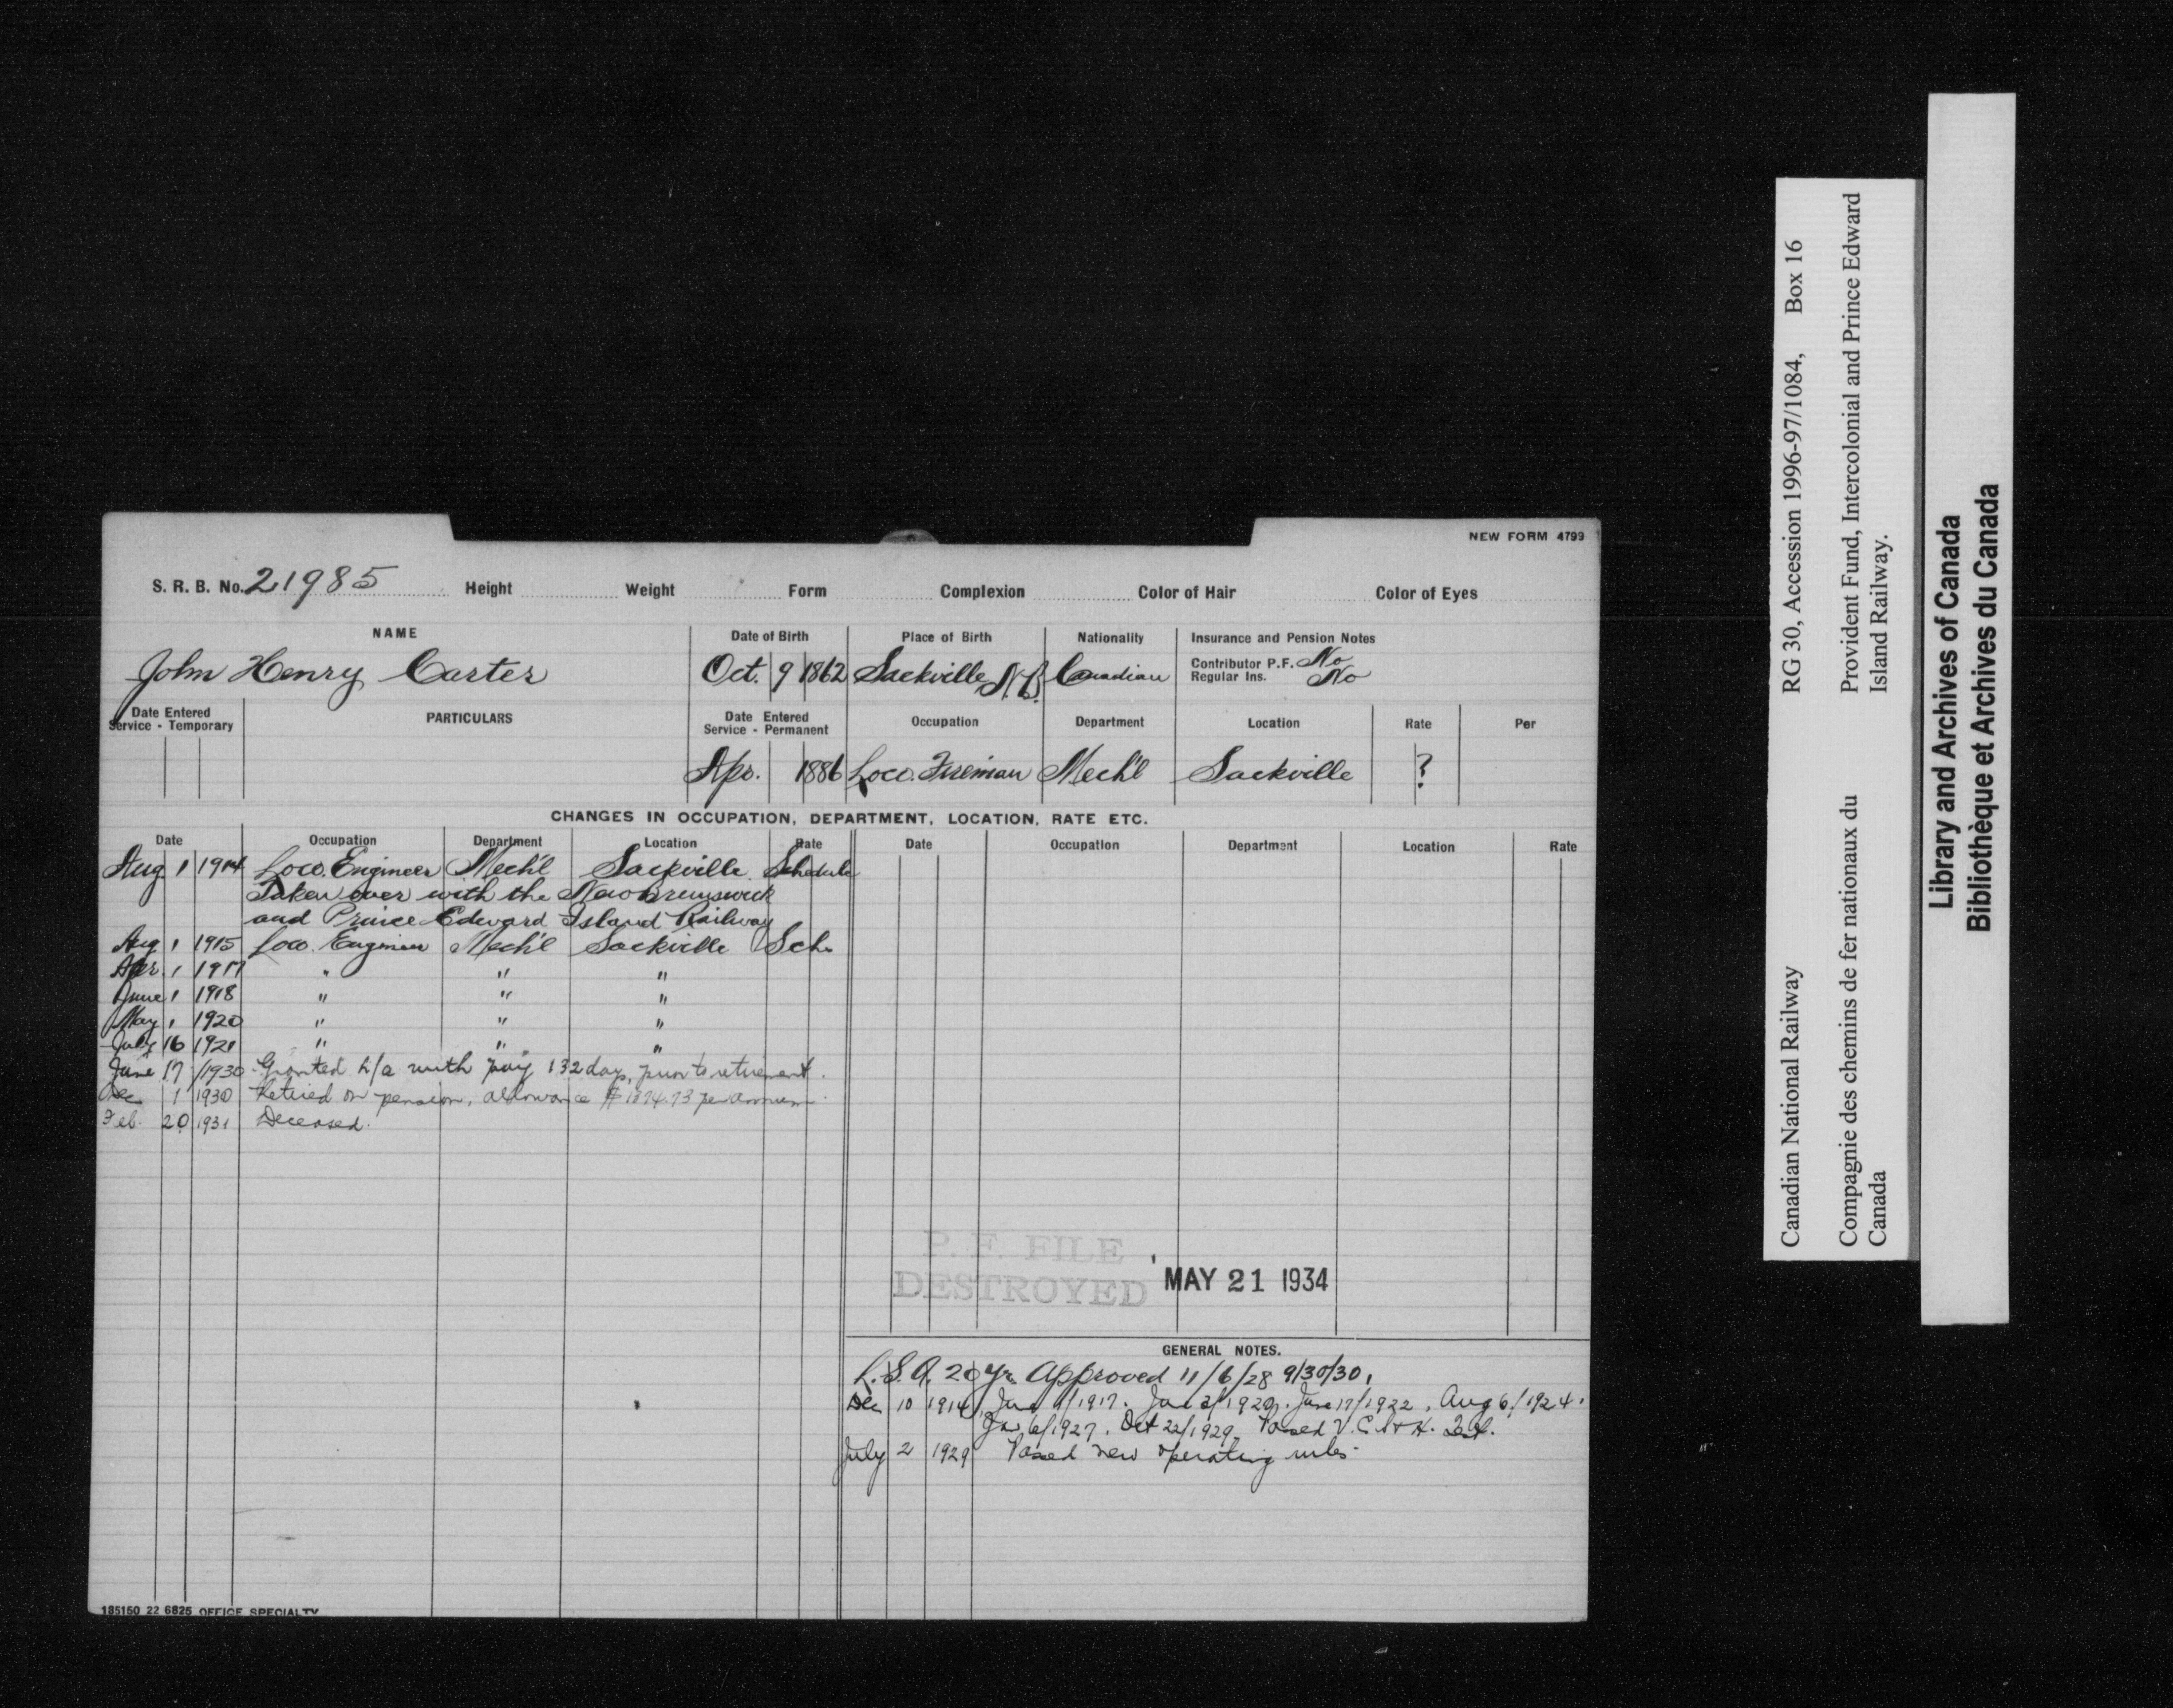 NEW FORM 4799
S. R. B. No. 21985 Height Weight Form Complexion Color of Hair Color of Eyes
NAME Date of Birth Place of Birth Nationality Insurance and Pension Notes
John Henry Carter Oct. 9 1862 Sackville, N.B. Canadian Contributor P.F. No
Regular Ins. No
Date Entered Service - Temporary PARTICULARS Date Entered Service - Permanent Occupation Department Location Rate Per
Apr. 1886 Loco. Fireman Mech'l Sackville ?
CHANGES IN OCCUPATION, DEPARTMENT, LOCATION, RATE ETC.
Date Occupation Department Location Rate Date Occupation Department Location Rate
Aug 1 1914 Loco. Engineer Mech'l Sackville Schedule
Taken over with the New Brunswick
and Prince Edward Island Railway
Aug 1 1915 Loco. Engineer Mech'l Sackville Sch.
Apr. 1 1917 " " "
June 1 1918 " " "
May 1 1920 " " "
July 16 1921 " " "
June 17 1930 Granted L/a with pay 132 days, prior to retirement.
Dec 1 1930 Retired on pension, allowance per annum.
Feb. 20 1931 Deceased.
P. F. FILE
DESTROYED MAY 21 1934
GENERAL NOTES.
L.S.A. 20 Yr. Approved 11/6/28 9/30/30.
Dec 10 1914, /1917. /1920. June 17/1922, Aug 6/1924.
Jan 6/1927. Oct 22/1929. Passed V.C.S & H. Test.
July 2 1929 Passed new operating rules
185150 22 6825 OFFICE SPECIALTY
RG 30, Accession 1996-97/1084, Box 16
Canadian National Railway
Provident Fund, Intercolonial and Prince Edward
Island Railway.
Compagnie des chemins de fer nationaux du
Canada
Library and Archives of Canada
Bibliothèque et Archives du Canada